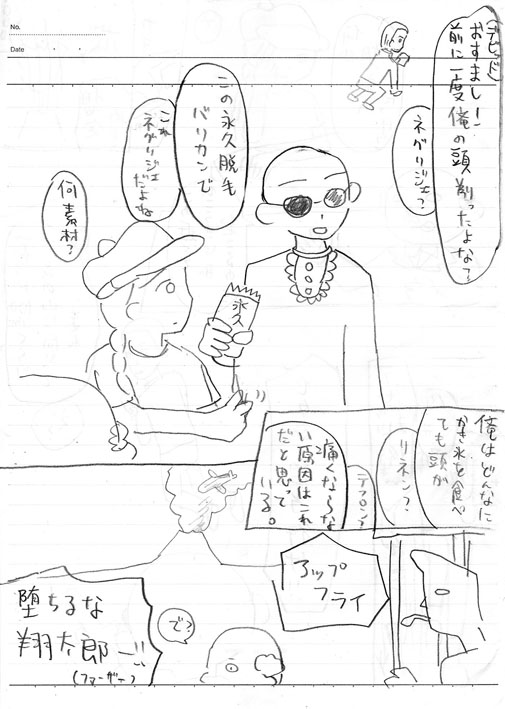 No.
Date
(デビッド)
おすまし!
前に一度俺の頭剃ったよな?
ネグリジェ?
この永久脱毛
バリカンで
これ
ネグリジェ
だよね
何素材?
永久
俺はどんなに
かき氷を食べ
ても頭が
リネン?
テフロン?
痛くならな
い原因はこれ
だと思って
いる。
アップ
フライ
で?
堕ちるな
翔太郎ー!!
(ファーザー)